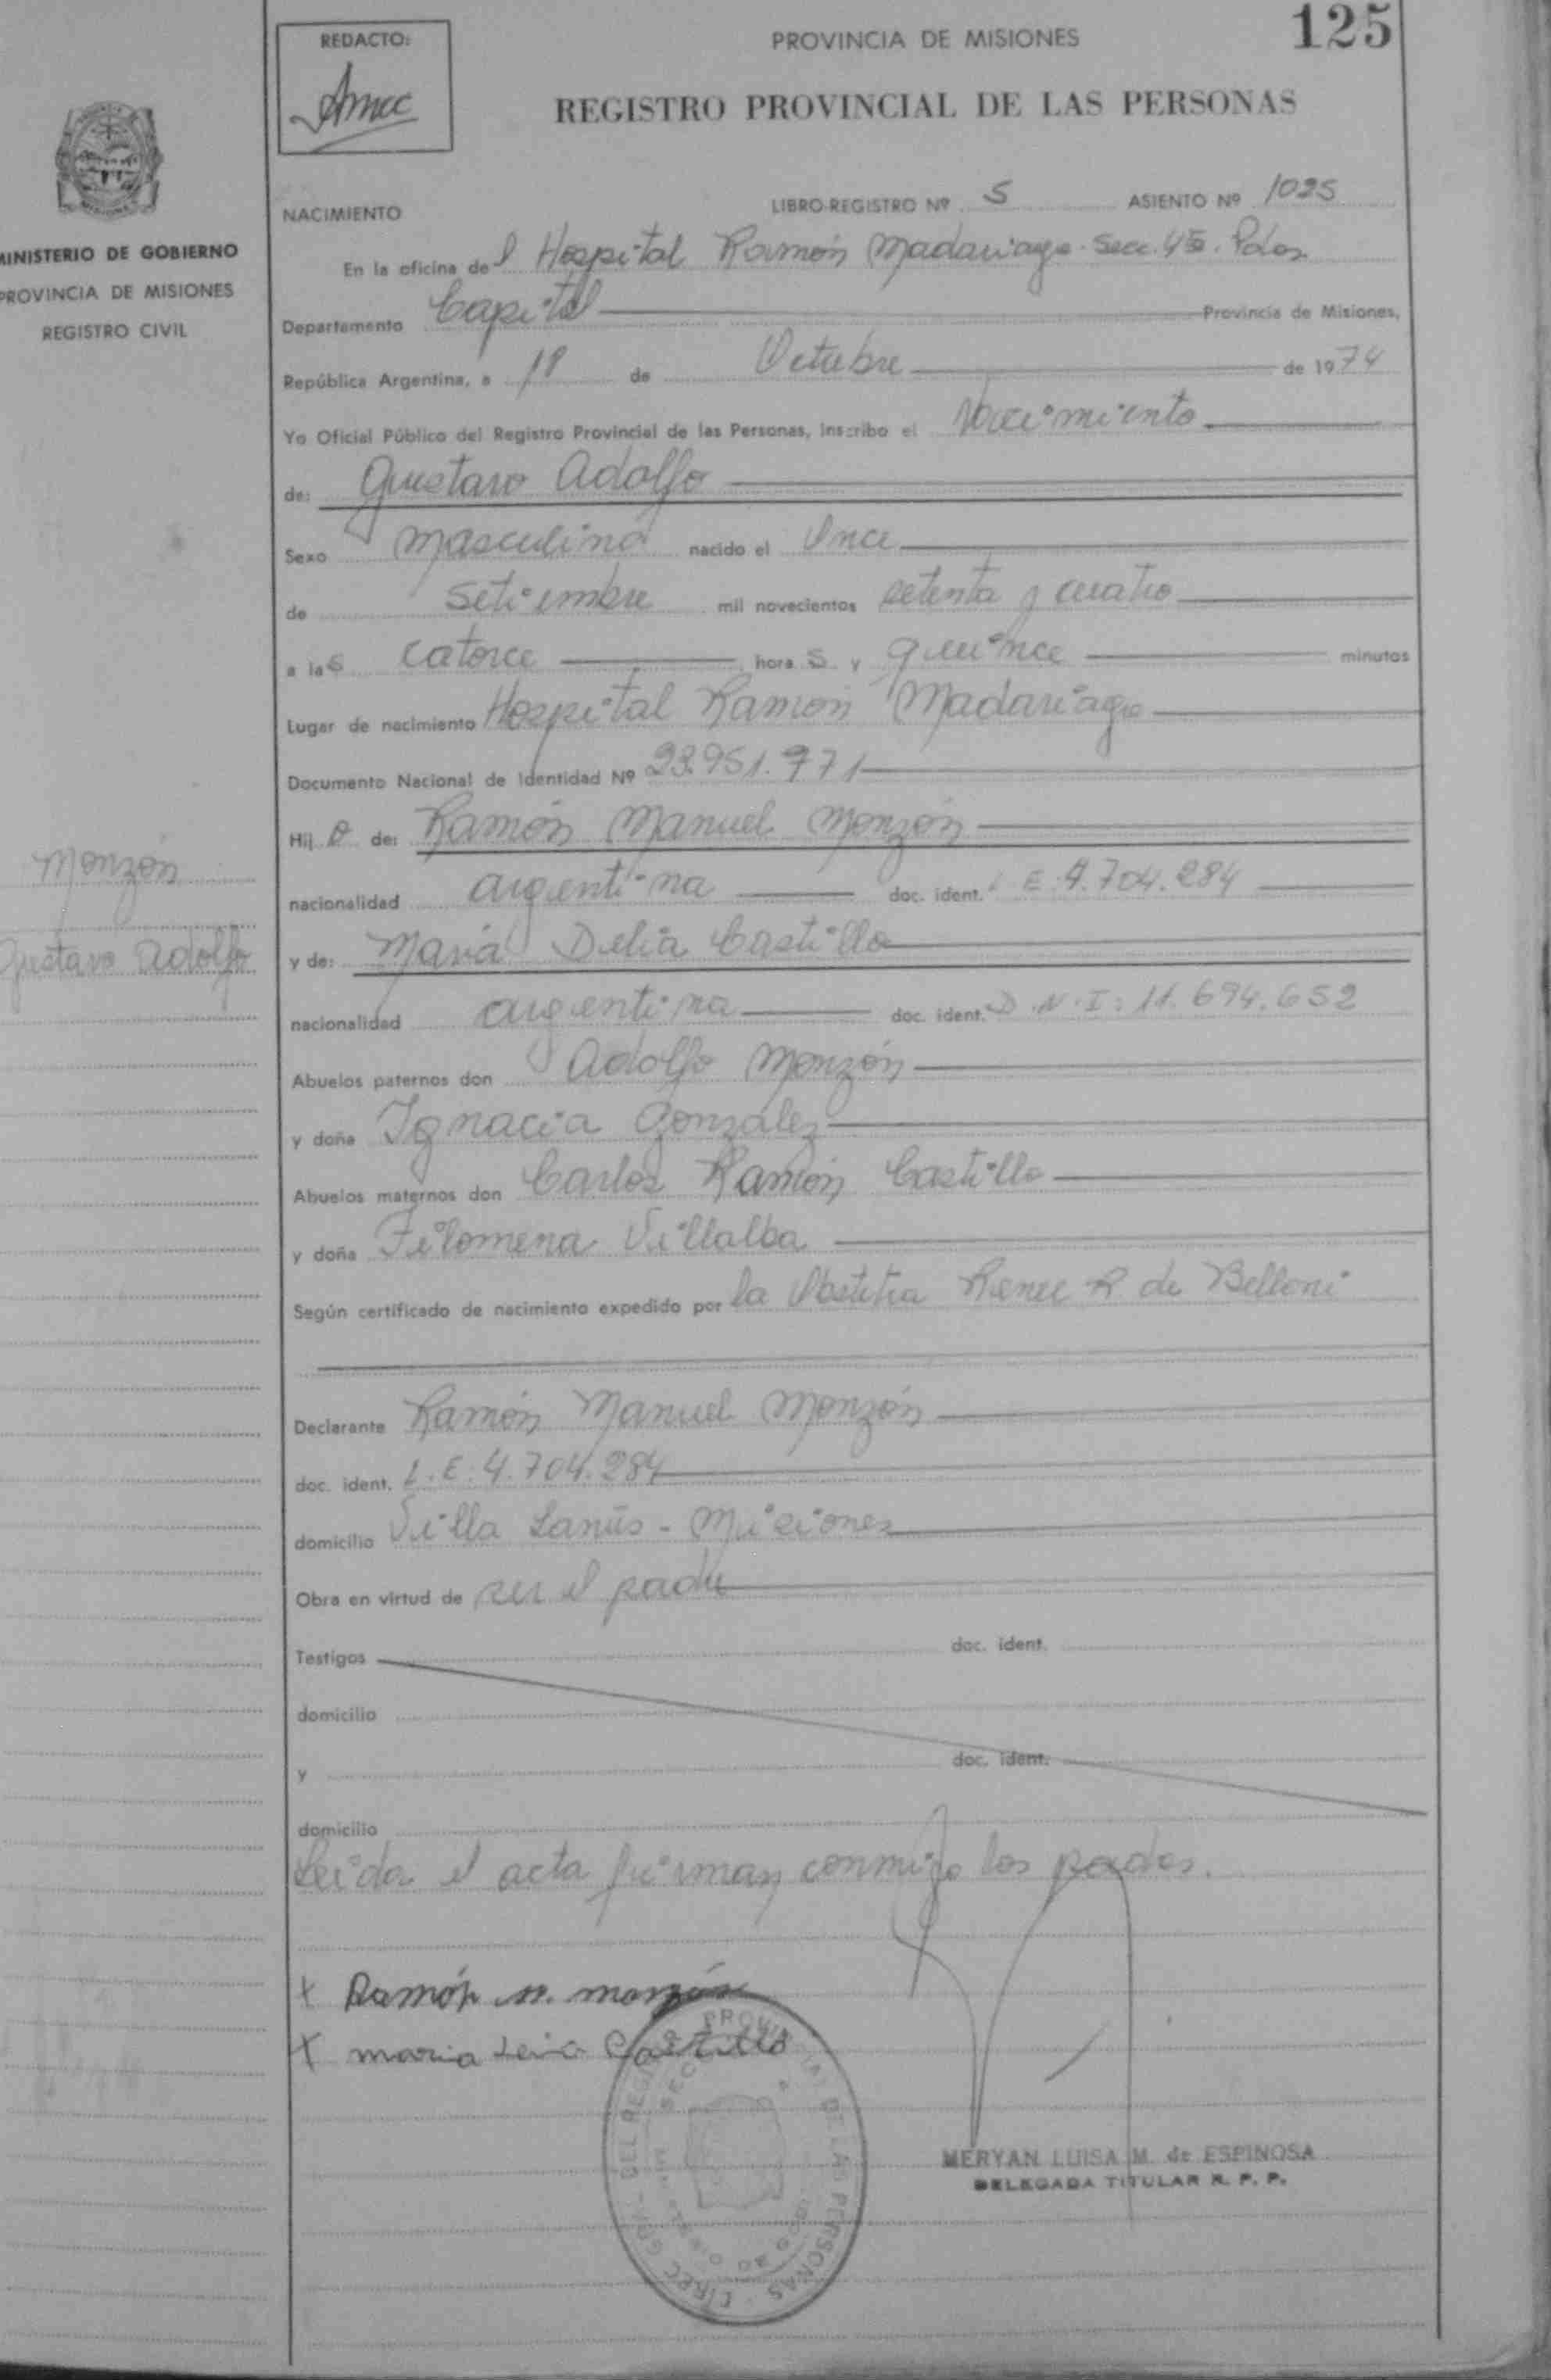 125
REDACTO:
PROVINCIA DE MISIONES
REGISTRO PROVINCIAL DE LAS PERSONAS
MINISTERIO DE GOBIERNO
PROVINCIA DE MISIONES
REGISTRO CIVIL
NACIMIENTO LIBRO-REGISTRO Nº 5 ASIENTO Nº 1025
En la oficina del Hospital Ramón Madariaga - Secc. 4ª. Pdas
Departamento Capital Provincia de Misiones,
República Argentina, a 18 de Octubre de 1974
Yo Oficial Público del Registro Provincial de las Personas, inscribo el Nacimiento
de: Gustavo Adolfo
Sexo masculino nacido el Once
de setiembre mil novecientos setenta y cuatro
a las catorce horas y quince minutos
Lugar de nacimiento Hospital Ramón Madariaga
Documento Nacional de Identidad Nº 23.951.771
Hijo de: Ramón Manuel Monzón
nacionalidad argentina doc. ident. L E. 4.704.284
y de: María Delia Castillo
nacionalidad argentina doc. ident. D.N.I: 11.694.652
Abuelos paternos don Adolfo Monzón
y doña Ignacia González
Abuelos maternos don Carlos Ramón Castillo
y doña Filomena Villalba
Según certificado de nacimiento expedido por la Obstetra Renee R. de Belloni
Declarante Ramón Manuel Monzón
doc. ident. L.E. 4.704.284
domicilio Villa Lanús - Misiones
Obra en virtud de ser el padre
Testigos doc. ident.
domicilio
y doc. ident.
domicilio
Leida el acta firman conmigo los padres.
x Ramón M. monzón
x maria Castillo
MERYAN LUISA M. de ESPINOSA
DELEGADA TITULAR R. P. P.
Monzón
Gustavo Adolfo